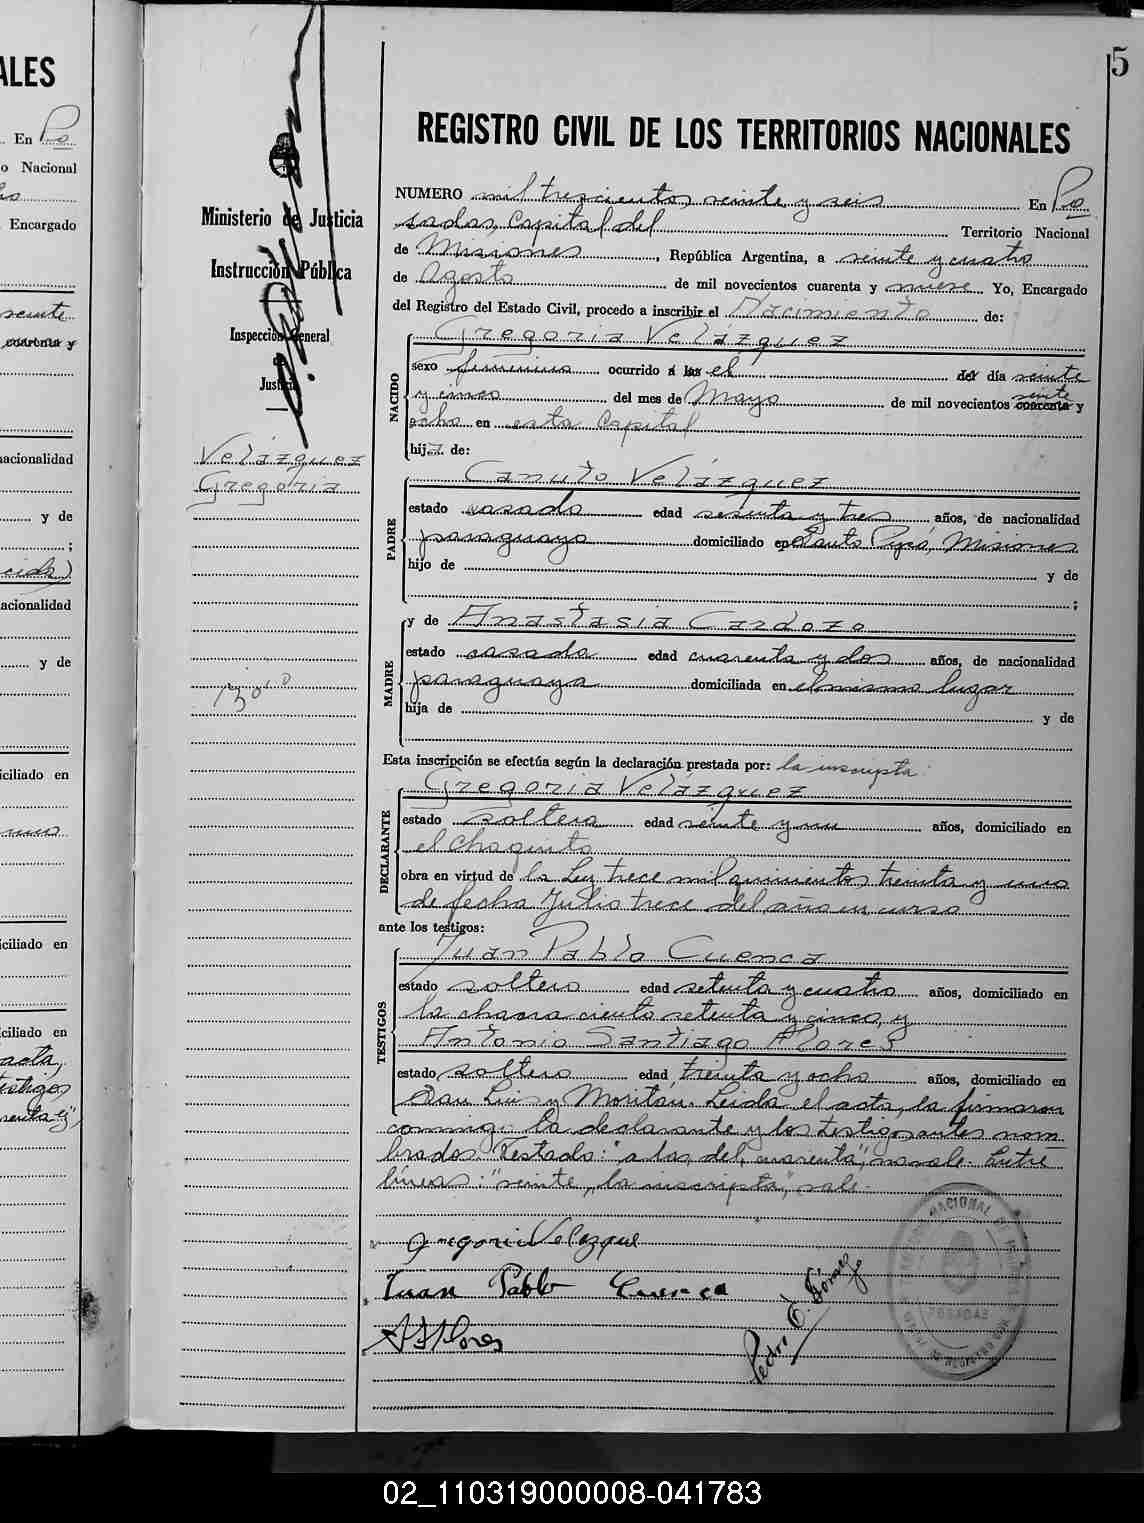 ALES
En Po
o Nacional
Encargado
veinte
cuarenta y
nacionalidad
y de
;
acionalidad
y de
iciliado en
iciliado en
iciliado en
acta,
testigos
5
REGISTRO CIVIL DE LOS TERRITORIOS NACIONALES
Ministerio de Justicia
Instrucción Pública
Inspección General
de
Justicia
Velázquez
Gregoria
NUMERO mil trescientos veinte y seis En Po
sadas, Capital del Territorio Nacional
de Misiones, República Argentina, a veinte y cuatro
de Agosto de mil novecientos cuarenta y nueve Yo, Encargado
del Registro del Estado Civil, procedo a inscribir el Nacimiento de:
NACIDO
Gregoria Velázquez
sexo femenino ocurrido á las el del día veinte
y cinco del mes de Mayo de mil novecientos cuarenta veinte y
ocho en esta Capital
hija de:
PADRE
Canuto Velázquez
estado casado edad sesenta y tres años, de nacionalidad
paraguayo domiciliado en Santo Pipó, Misiones
hijo de y de
;
MADRE
y de Anastasia Cardozo
estado casada edad cuarenta y dos años, de nacionalidad
paraguaya domiciliada en el mismo lugar
hija de y de
Esta inscripción se efectúa según la declaración prestada por: la inscripta
DECLARANTE
Gregoria Velázquez
estado soltera edad veinte y un años, domiciliado en
el Chaquito
obra en virtud de la Ley trece mil quinientos treinta y uno
de fecha Julio trece del año en curso
ante los testigos:
TESTIGOS
Juan Pablo Cuenca
estado soltero edad setenta y cuatro años, domiciliado en
la chacra ciento setenta y cinco, y
Antonio Santiago Flores
estado soltero edad treinta y ocho años, domiciliado en
San Luis y Moritán. Leida el acta, la firmaron
conmigo la declarante y los testigos antes nom
brados. Testado: "a las, del, cuarenta", no vale. Entre
líneas: "veinte, la inscripta", vale.
Gregoria Velazque
Juan Pablo Cuenca
A S Flores
Pedro O. Gómez
POSADAS
02_110319000008-041783